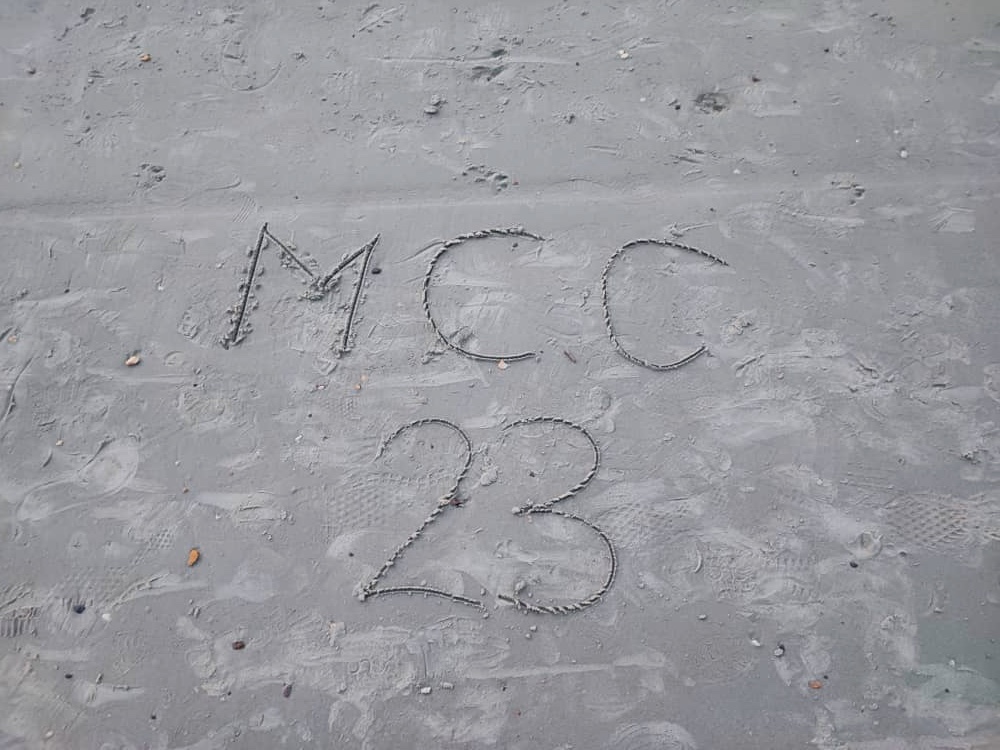 MCC
23